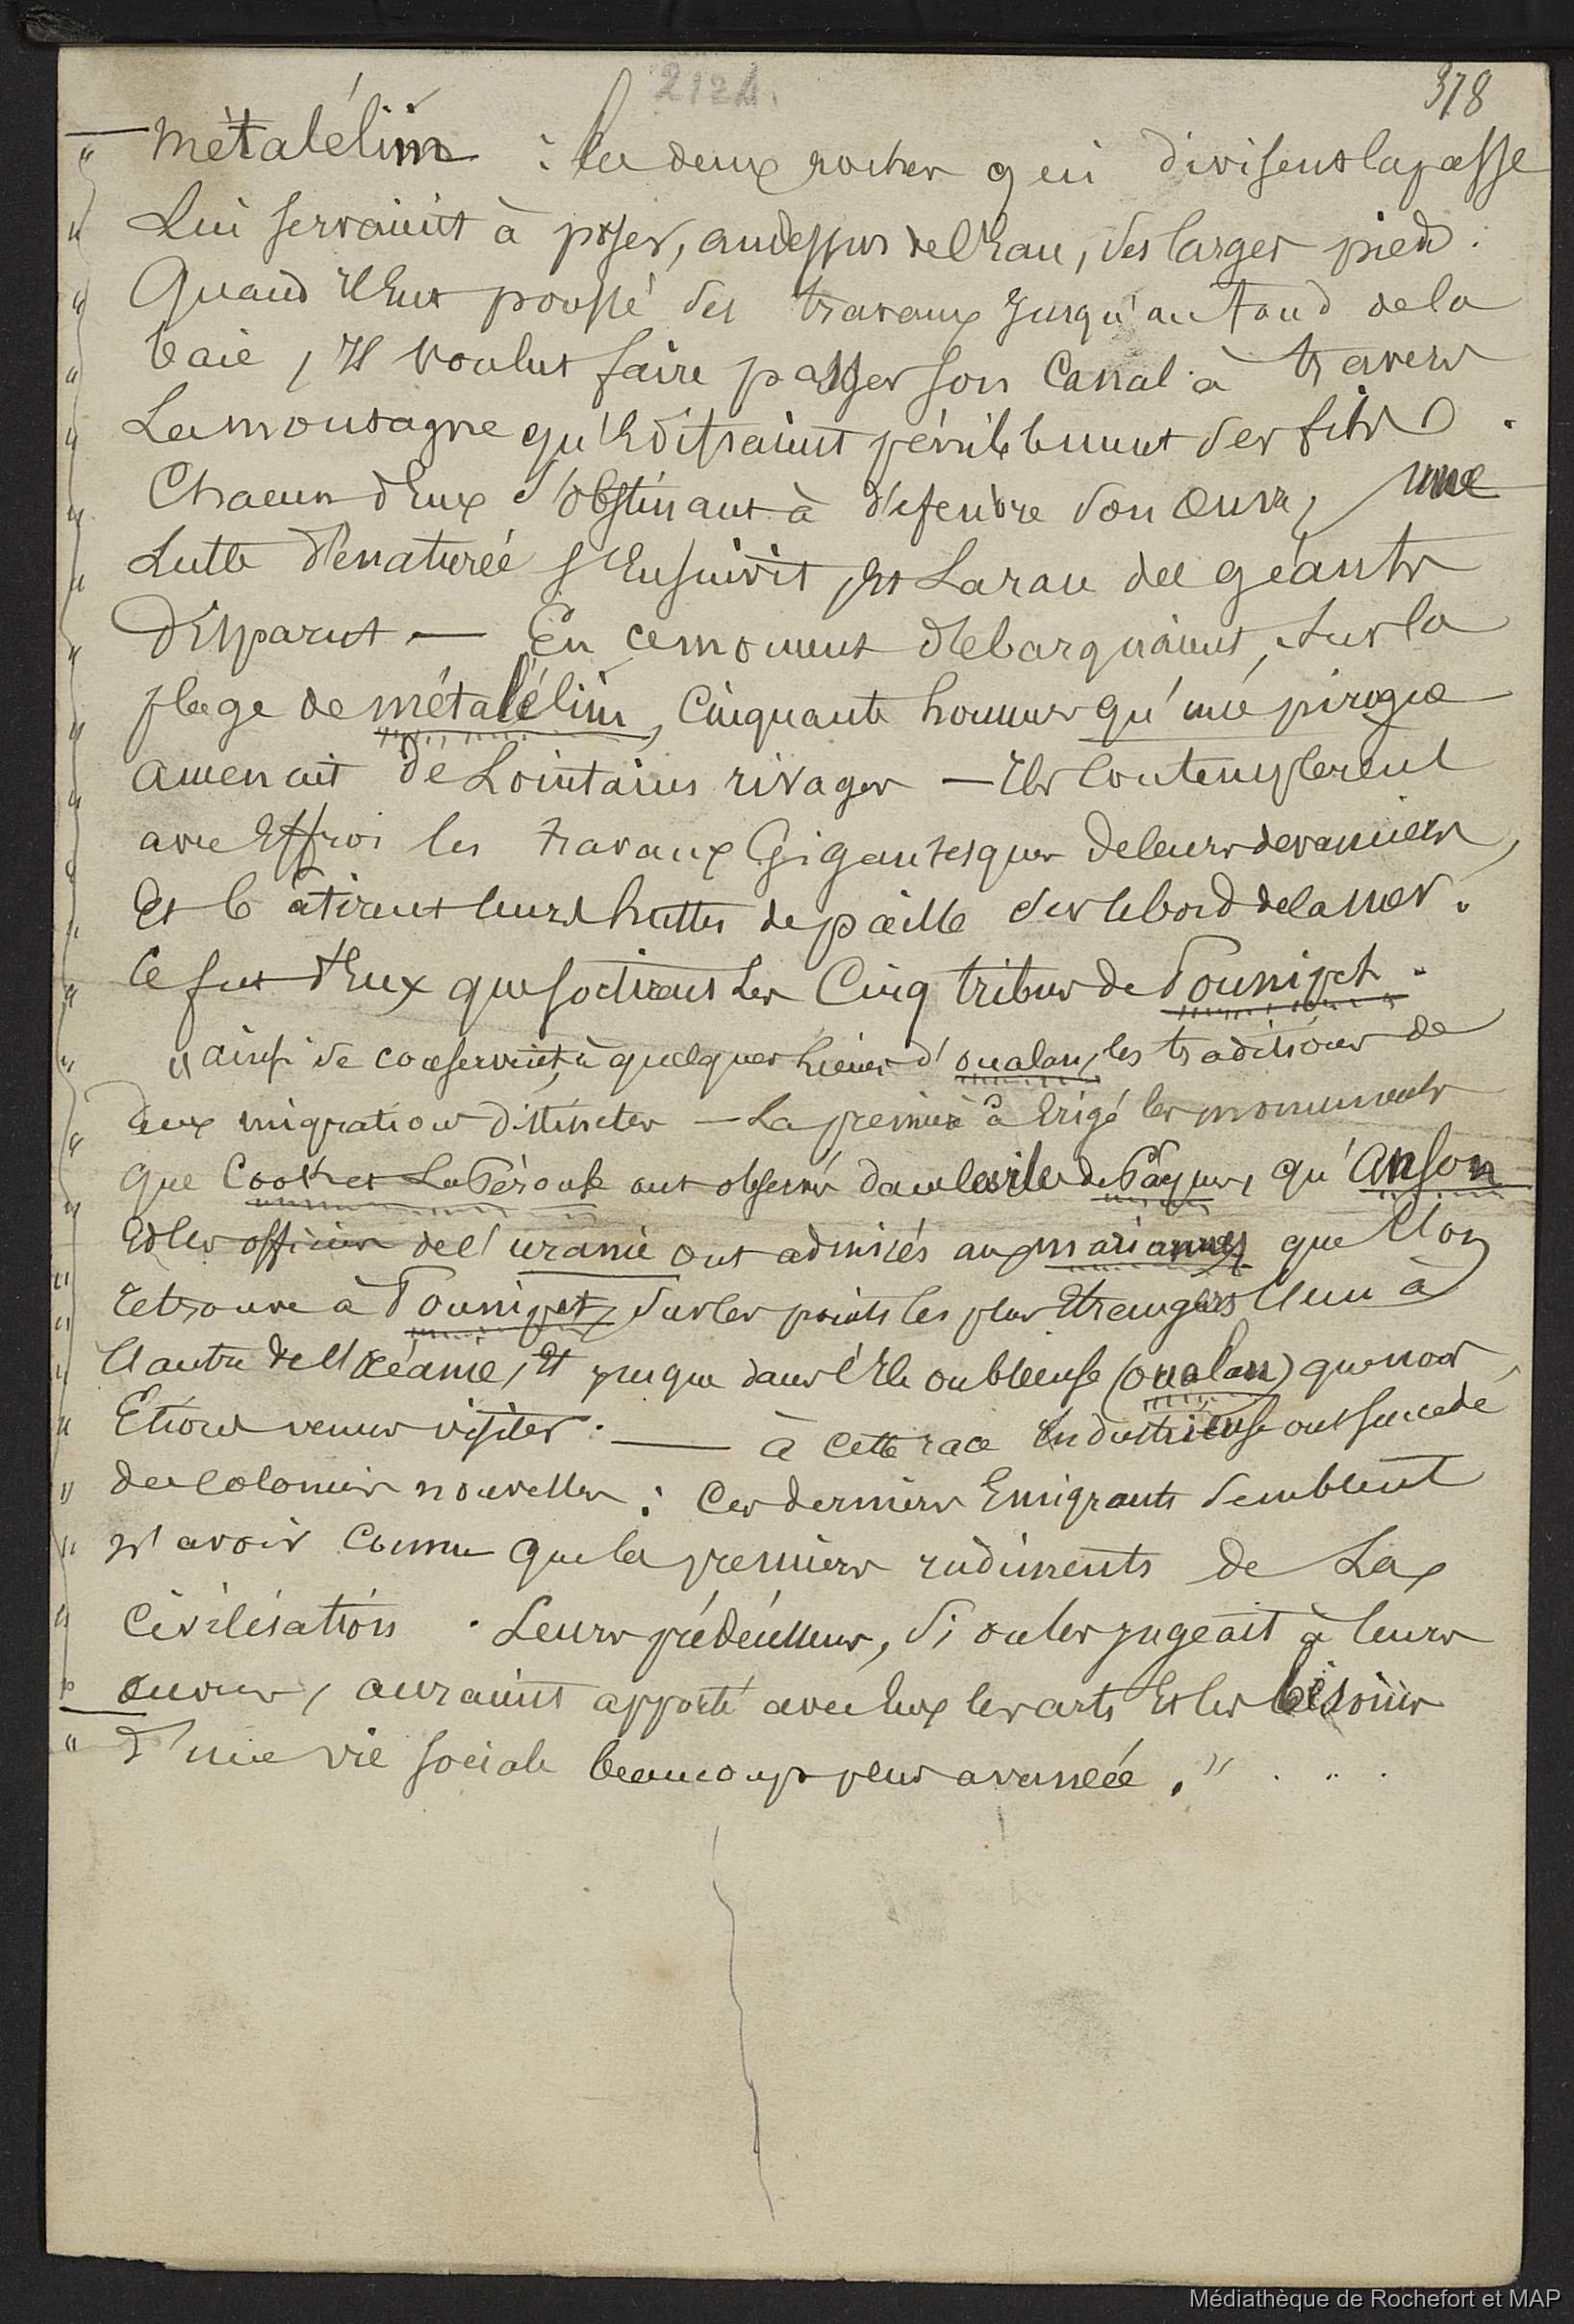 2124.
378
" Métalélim : les deux rochers qui divisent la passe
" Lui servaient à poser, au dessus de l'Eau, ses larges pieds.
" Quand il Eut poussé ses travaux jusqu'au fond de la
" baie, Il voulut faire passer son Canal à travers
" La montagne qu'Edifiaient péniblement ses fils.
" Chacun d'Eux s'obstinant à défendre son œuvre, une
" Lutte dénaturée s'Ensuivit, Et La race des géants
" Disparut — En ce moment débarquaient, sur la
" plage de métalélim, Cinquante hommes qu'une pirogue
" amenait de Lointains rivages — Ils Contemplèrent
" avec Effroi les travaux Gigantesques de leurs devanciers,
" Et bâtirent leurs huttes de paille sur le bord de la mer.
" Ce fut d'Eux que sortirent Les Cinq tribus de Pounipet.
" " ainsi se conservent, à quelques lieues d'oualan, les traditions de
" deux migrations distinctes — La première a Erigé les monuments
" que Cook et La Pérouse ont observés dans les iles de Pâques, qu'Anson
Et les officiers de l'uranie ont admirés aux mariannes que l'on
" retrouve à Pounipet, sur les points les plus Etrangers l'un à
" l'autre de l'océanie, Et jusque dans l'Ile oublieuse (oualan) que nous
" Etions venus visiter. — à cette race Industrieuse ont succédé
" des Colonies nouvelles : Ces derniers Emigrants semblent
" n'avoir connu que les premiers rudiments de La
" Civilisation. Leurs prédécesseurs, si on les jugeait à leurs
" œuvres, auraient apporté avec Eux les arts Et les besoins
" d'une vie sociale beaucoup plus avancée. "
Médiathèque de Rochefort et MAP